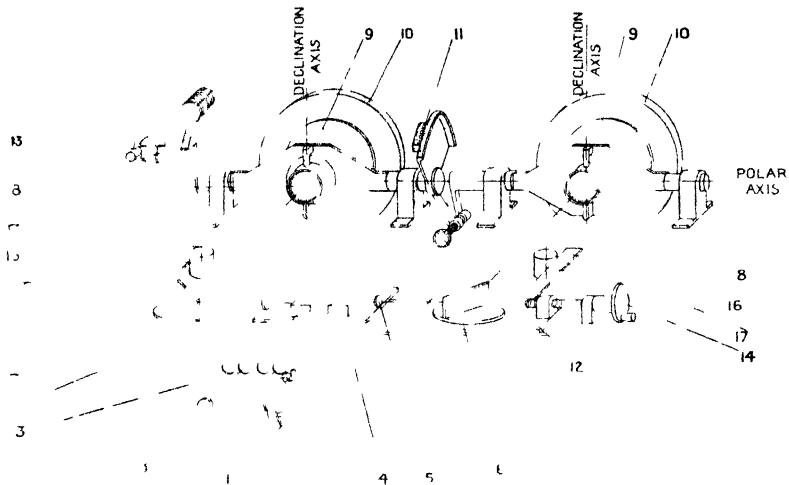 DECLINATION
AXIS
9 10 11
DECLINATION
AXIS
9 10
13
8
POLAR
AXIS
8
16
17
14
12
3
1 4 5